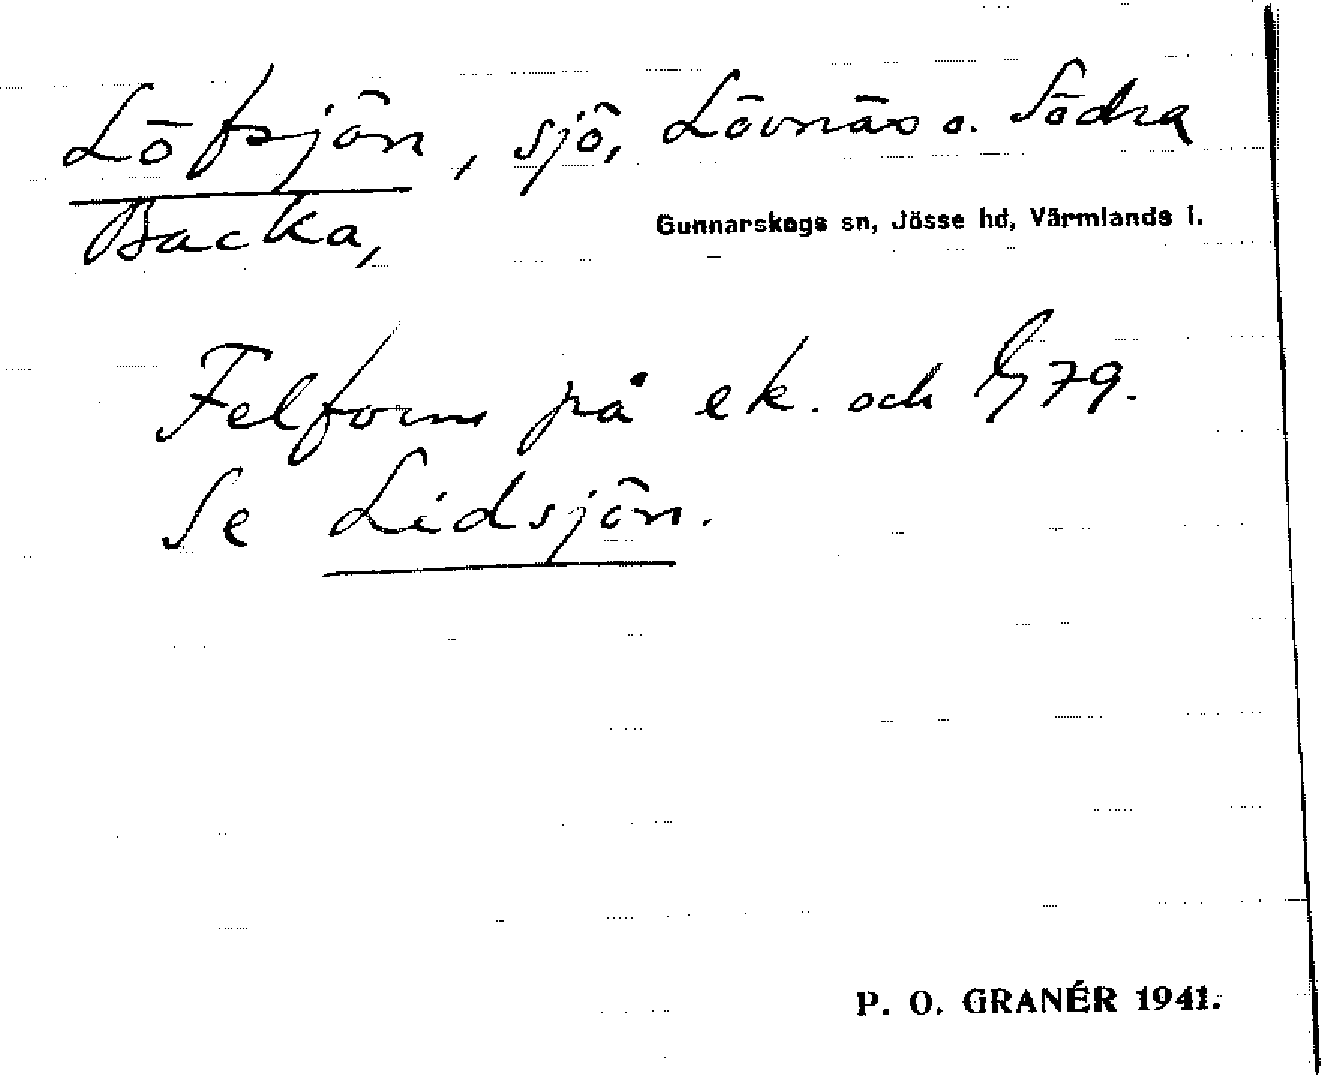 Löfsjön, sjö, Lövnäs o. Södra
Backa,
Gunnarskogs sn, Jösse hd, Värmlands l.
Felform på ek. och G79.
Se Lidsjön.
P. O. GRANÉR 1941.